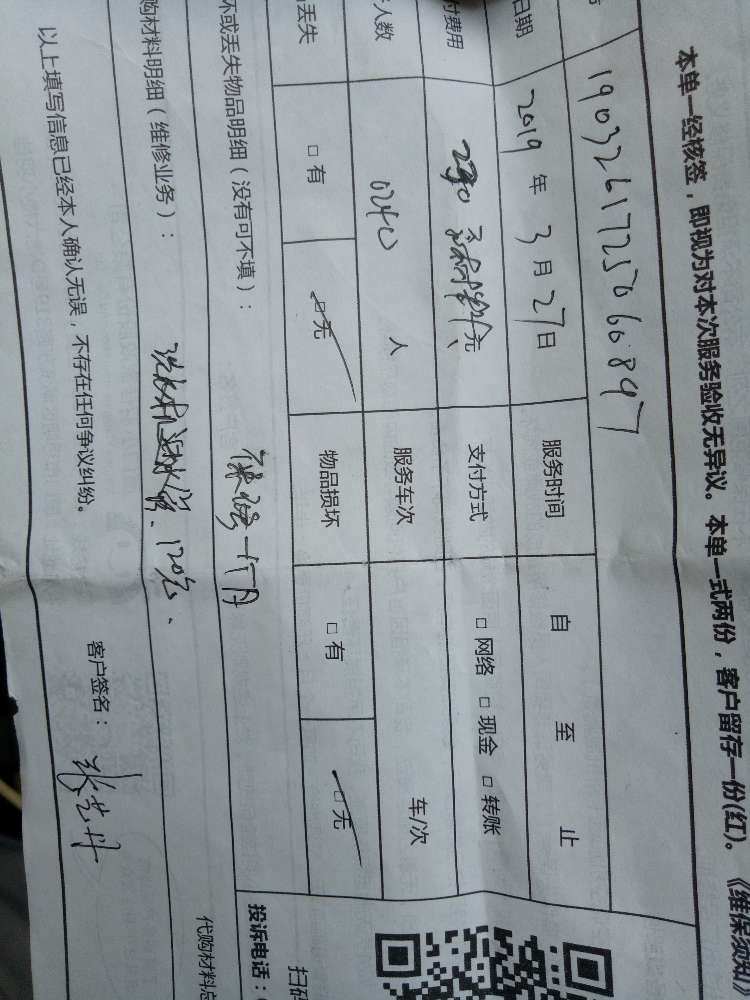 本单一经核签，即视为对本次服务验收无异议。本单一式两份，客户留存一份(红)。《维保须知》
1903261725060897
日期 2019年3月27日 服务时间 自 至 止
付费用 290 元 支付方式 □网络 □现金 □转账
人数 人 服务车次 车/次
丢失 □有 □无 物品损坏 □有 □无
坏或丢失物品明细（没有可不填）： 保修一个月
购材料明细（维修业务）： 洗衣机进水管、120元、
代购材料总
以上填写信息已经本人确认无误，不存在任何争议纠纷。 客户签名：
扫码
投诉电话：